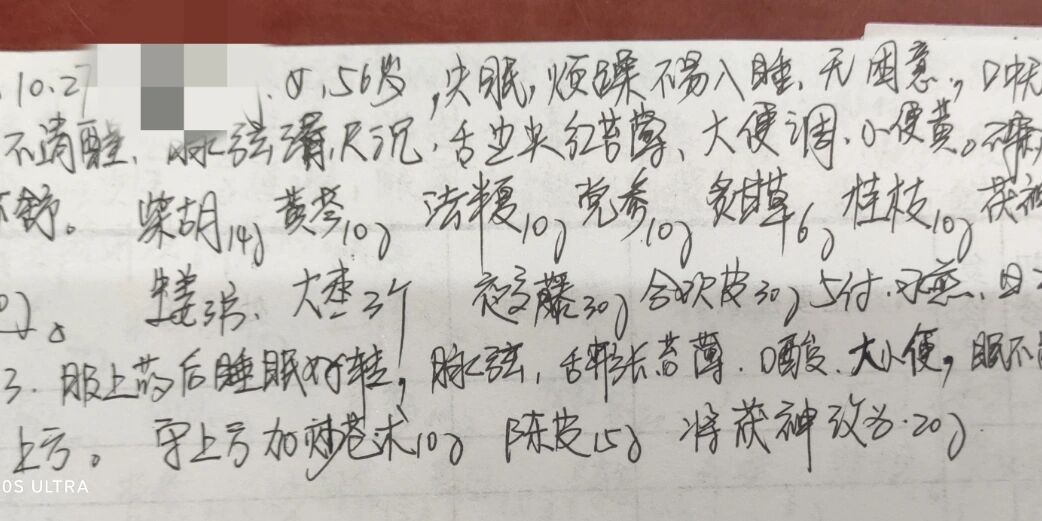 .10.27 . 女.56岁,失眠,烦躁不易入睡.无困意,口中无
不清醒. 脉弦滑,尺沉.舌边尖红苔薄、大便调.小便黄。不
不舒。 柴胡14g 黄芩10g 法半夏10g 党参10g 炙甘草6g 桂枝10g 茯神
0g。 生姜3片. 大枣3个 夜交藤30g 合欢皮30g 5付.水煎.日
3.服上药后睡眠好转,脉弦,舌胖张苔薄.口酸.大小便,眠不
上方。 守上方加炒苍术10g 陈皮15g 将茯神改为.20g
0S ULTRA